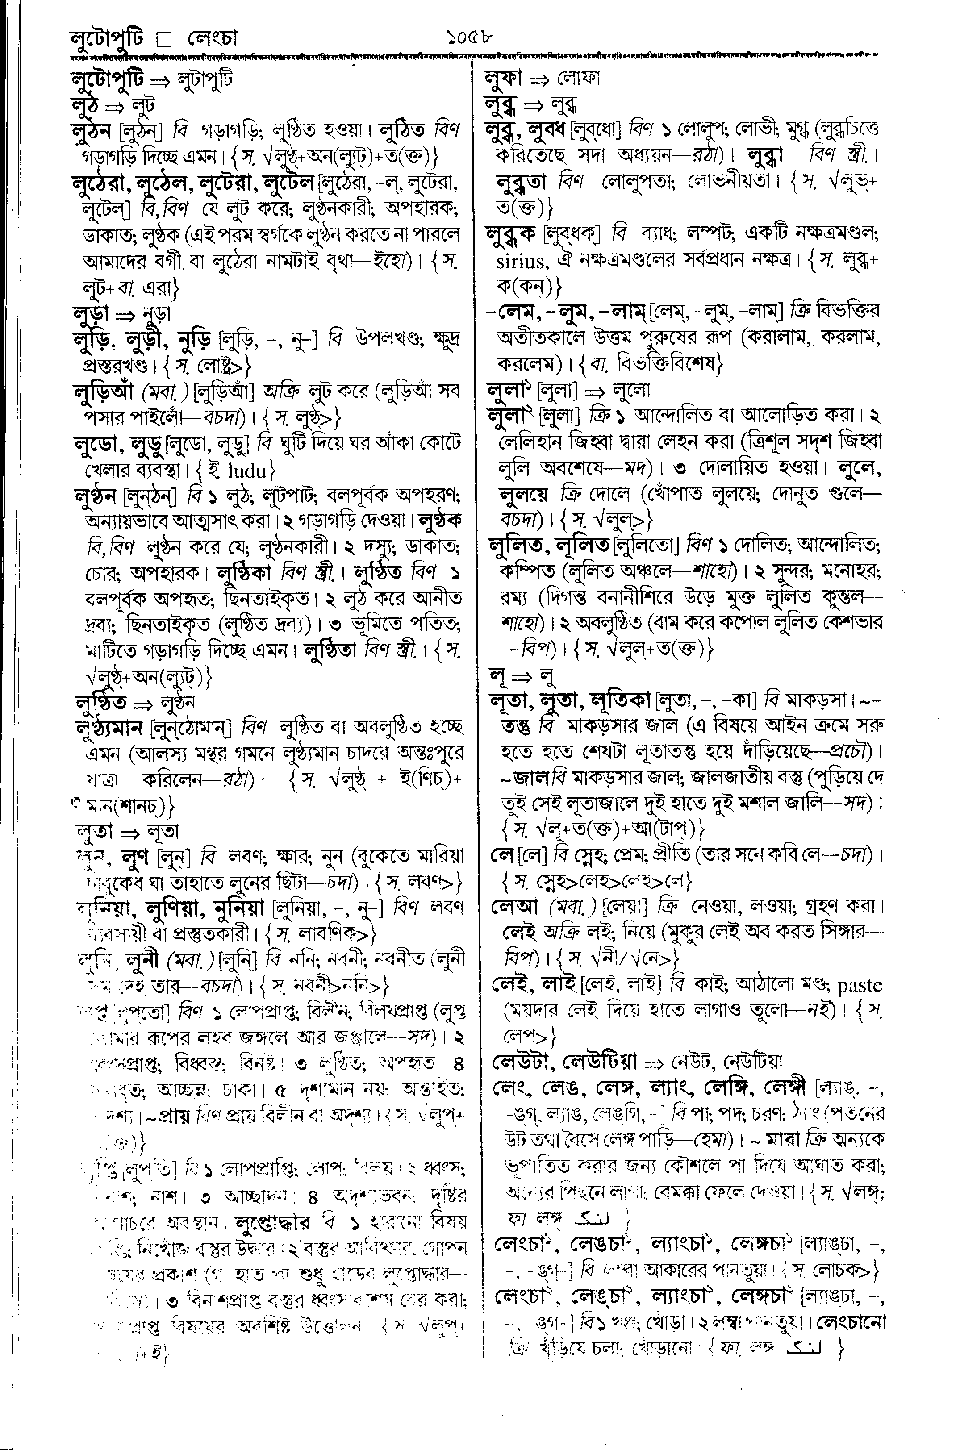 লুটোপুটি □ লেংচা
১০৫৮
লুটোপুটি ⇒ লুটাপুটি
লুঠ ⇒ লুট
লুঠন [লুঠন্] বি গড়াগড়ি; লুণ্ঠিত হওয়া। লুঠিত বিণ
গড়াগড়ি দিচ্ছে এমন। {স. √লুঠ্+অন(ল্যুট)+ত(ক্ত)}
লুঠেরা, লুঠেল, লুটেরা, লুটেল [লুঠেরা, -ল্, লুটেরা,
লুটেল] বি,বিণ যে লুট করে; লুণ্ঠনকারী; অপহারক;
ডাকাত; লুণ্ঠক (এই পরম স্বর্গকে লুণ্ঠন করতে না পারলে
আমাদের বর্গী বা লুঠেরা নামটাই বৃথা—ইহো)। {স.
লুট+বা. এরা}
লুড়া ⇒ নুড়া
লুড়ি, লুড়ী, নুড়ি [লুড়ি, -, নু-] বি উপলখণ্ড; ক্ষুদ্র
প্রস্তরখণ্ড। {স. লোষ্ট্র>}
লুড়িআঁ (মবা.) [লুড়িআঁ] অক্রি লুট করে (লুড়িআঁ সব
পসার পাইলোঁ—বচদা)। {স. লুণ্ঠ>}
লুডো, লুডু [লুডো, লুডু] বি ঘুটি দিয়ে ঘর আঁকা কোটে
খেলার ব্যবস্থা। {ই. ludu}
লুণ্ঠন [লুন্‌ঠন্] বি ১ লুঠ; লুটপাট; বলপূর্বক অপহরণ;
অন্যায়ভাবে আত্মসাৎ করা। ২ গড়াগড়ি দেওয়া। লুণ্ঠক
বি,বিণ লুণ্ঠন করে যে; লুণ্ঠনকারী। ২ দস্যু; ডাকাত;
চোর; অপহারক। লুণ্ঠিকা বিণ স্ত্রী.। লুণ্ঠিত বিণ ১
বলপূর্বক অপহৃত; ছিনতাইকৃত। ২ লুঠ করে আনীত
দ্রব্য; ছিনতাইকৃত (লুণ্ঠিত দ্রব্য)। ৩ ভূমিতে পতিত;
মাটিতে গড়াগড়ি দিচ্ছে এমন। লুণ্ঠিতা বিণ স্ত্রী.। {স.
√লুণ্ঠ্+অন(ল্যুট)}
লুণ্ঠিত ⇒ লুণ্ঠন
লুণ্ঠ্যমান [লুন্‌ঠোমান্] বিণ লুণ্ঠিত বা অবলুণ্ঠিত হচ্ছে
এমন (আলস্য মন্থর গমনে লুণ্ঠ্যমান চাদরে অন্তঃপুরে
যাত্রা করিলেন—রঠা)। {স. √লুণ্ঠ্ + ই(ণিচ)+
মান(শানচ)}
লুতা ⇒ লূতা
লুন, লুণ [লুন্] বি লবণ; ক্ষার; নুন (বুকেতে মারিয়া
চাবুকের ঘা তাহাতে লুনের ছিটা—চদা)। {স. লবণ>}
লুনিয়া, লুণিয়া, নুনিয়া [লুনিয়া, -, নু-] বিণ লবণ
ব্যবসায়ী বা প্রস্তুতকারী। {স. লাবণিক>}
লুনি, লুনী (মবা.) [লুনি] বি ননি; নবনী; নবনীত (লুনী
সম দেহ তার—বচদা)। {স. নবনী>ননি>}
লুপ্ত [লুপ্‌তো] বিণ ১ লোপপ্রাপ্ত; বিলীন; বিলয়প্রাপ্ত (লুপ্ত
আমার রূপের লহর জঙ্গলে আর জঞ্জালে—সদ)। ২
ধ্বংসপ্রাপ্ত; বিধ্বস্ত; বিনষ্ট। ৩ লুণ্ঠিত; অপহৃত ৪
আবৃত; আচ্ছন্ন; ঢাকা। ৫ দৃশ্যমান নয়; অন্তর্হিত;
অদৃশ্য। ~প্রায় বিণ প্রায় বিলীন বা অদৃশ্য। {স. √লুপ্+
ত(ক্ত)}
লুপ্তি [লুপ্‌তি] বি ১ লোপপ্রাপ্তি; লোপ; বিলয়। ২ ধ্বংস;
বিনাশ; নাশ। ৩ আচ্ছাদন; ৪ অদৃশ্যভবন; দৃষ্টির
অগোচরে অবস্থান। লুপ্তোদ্ধার বি ১ হারানো বিষয়
প্রাপ্তি; নিখোঁজ বস্তুর উদ্ধার। ২ বস্তুর আবিষ্কার, গোপন
বিষয়ের প্রকাশ (এ হাত পা শুধু হাড়ের লুপ্তোদ্ধার—
। ৩ বিনাশপ্রাপ্ত বস্তুর ধ্বংসাবশেষ বের করা;
লোপপ্রাপ্ত বিষয়ের অবশিষ্ট উত্তোলন। {স. √লুপ্+
+ই}
লুফা ⇒ লোফা
লুব্ধ ⇒ লুব্ধ
লুব্ধ, লুবধ [লুব্‌ধো] বিণ ১ লোলুপ; লোভী; মুগ্ধ (লুব্ধচিত্তে
করিতেছে সদা অধ্যয়ন—রঠা)। লুব্ধা বিণ স্ত্রী.।
লুব্ধতা বিণ লোলুপতা; লোভনীয়তা। {স. √লুভ্+
ত(ক্ত)}
লুব্ধক [লুব্‌ধক্] বি ব্যাধ; লম্পট; একটি নক্ষত্রমণ্ডল;
sirius, ঐ নক্ষত্রমণ্ডলের সর্বপ্রধান নক্ষত্র। {স. লুব্ধ+
ক(কন্)}
-লেম, -লুম, -লাম [লেম্, -লুম্, -লাম্] ক্রি বিভক্তির
অতীতকালে উত্তম পুরুষের রূপ (করলাম, করলাম,
করলেম)। {বা. বিভক্তিবিশেষ}
লুলা¹ [লুলা] ⇒ লুলো
লুলা² [লুলা] ক্রি ১ আন্দোলিত বা আলোড়িত করা। ২
লেলিহান জিহ্বা দ্বারা লেহন করা (ত্রিশূল সদৃশ জিহ্বা
লুলি অবশেষে—মদ)। ৩ দোলায়িত হওয়া। লুলে,
লুলয়ে ক্রি দোলে (খোঁপাত লুলয়ে; দোনুত গুলে—
বচদা)। {স. √লুল্>}
লুলিত, লূলিত [লুলিতো] বিণ ১ দোলিত; আন্দোলিত;
কম্পিত (লুলিত অঞ্চলে—শাহো)। ২ সুন্দর; মনোহর;
রম্য (দিগন্ত বনানীশিরে উড়ে মুক্ত লুলিত কুন্তল—
শাহো)। ২ অবলুণ্ঠিত (বাম করে কপোল লুলিত কেশভার
-বিপ)। {স. √লুল্+ত(ক্ত)}
লূ ⇒ লু
লূতা, লুতা, লূতিকা [লুতা, -, -কা] বি মাকড়সা। ~
তন্তু বি মাকড়সার জাল (এ বিষয়ে আইন ক্রমে সরু
হতে হতে শেষটা লূতাতন্তু হয়ে দাঁড়িয়েছে—প্রচৌ)।
~জাল বি মাকড়সার জাল; জালজাতীয় বস্তু (পুড়িয়ে দে
তুই সেই লূতাজালে দুই হাতে দুই মশাল জালি—সদ)।
{স. √লূ+ত(ক্ত)+আ(টাপ্)}
লে [লে] বি স্নেহ; প্রেম; প্রীতি (তার সনে কবি লে—চদা)।
{স. স্নেহ>লেহ>লেহ>লে}
লেআ (মবা.) [লেয়া] ক্রি নেওয়া, লওয়া; গ্রহণ করা।
লেই অক্রি লই; নিয়ে (মুকুর লেই অব করত সিঙ্গার—
বিপ)। {স. √নী/√নে>}
লেই, লাই [লেই, লাই] বি কাই; আঠালো মণ্ড; paste
(ময়দার লেই দিয়ে হাতে লাগাও তুলো—নই)। {স.
লেপ>}
লেউটা, লেউটিয়া ⇒ নেউট, নেউটিয়া
লেং, লেঙ, লেঙ্গ, ল্যাং, লেঙ্গি, লেঙ্গী [ল্যাঙ্, -,
-ঙগ্, ল্যাঙ, লেঙগি, -] বি পা; পদ; চরণ; ঠ্যাং (পতনের
উট তথা বৈসে লেঙ্গ পাড়ি—হেমা)। ~ মারা ক্রি অন্যকে
ভূপাতিত করার জন্য কৌশলে পা দিয়ে আঘাত করা;
অন্যের পিছনে লাগা; বেমক্কা ফেলে দেওয়া। {স. √লঙ্গ্;
ফা. লঙ্গ لنگ}
লেংচা¹, লেঙচা¹, ল্যাংচা¹, লেঙ্গচা¹ [ল্যাঙচা, -,
-, -ঙগ্-] বি লম্বা আকারের পানতুয়া। {স. লোচক>}
লেংচা², লেঙ্‌চা², ল্যাংচা², লেঙ্গচা² [ল্যাঙচা, -,
-, ঙগ-] বি ১ খঞ্জ; খোঁড়া। ২ লম্বা পানতুয়া। লেংচানো
ক্রি খুঁড়িয়ে চলা; খোঁড়ানো। {ফা. লঙ্গ لنگ}